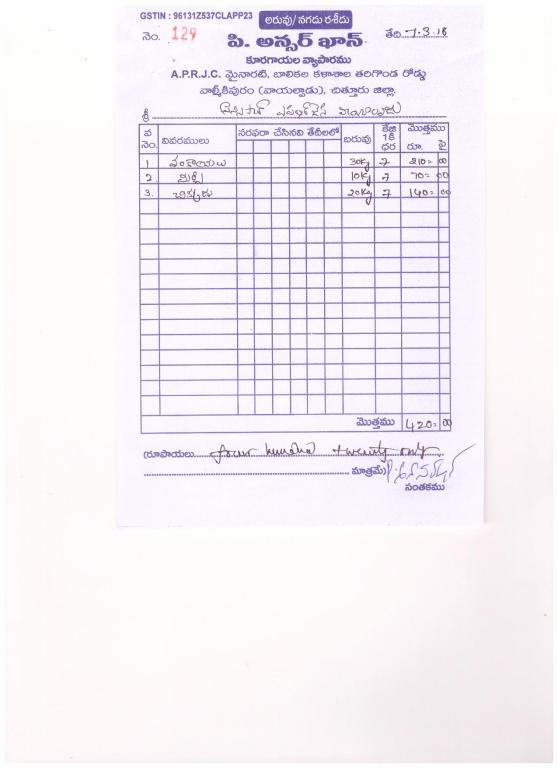 GSTIN : 96131Z537CLAPP23 అరువు/ నగదు రశీదు
నెం. 129 తేది 7-3-18
పి. అన్సర్ ఖాన్
కూరగాయల వ్యాపారము
A.P.R.J.C. మైనారటి, బాలికల కళాశాల తరిగొండ రోడ్డు
వాల్మీకిపురం (వాయల్పాడు), చిత్తూరు జిల్లా.
శ్రీ
వ నెం. వివరములు సరఫరా చేసినవి తేదీలలో బరువు కేజి 1కి ధర మొత్తము రూ. పై
1 వంకాయలు 30kg 7 210=00
2. మిర్చి 10kg 7 70=00
3. చిక్కుడు 20kg 7 140=00
మొత్తము 420=00
(రూపాయలు four hundred twenty only
మాత్రమే)
సంతకము